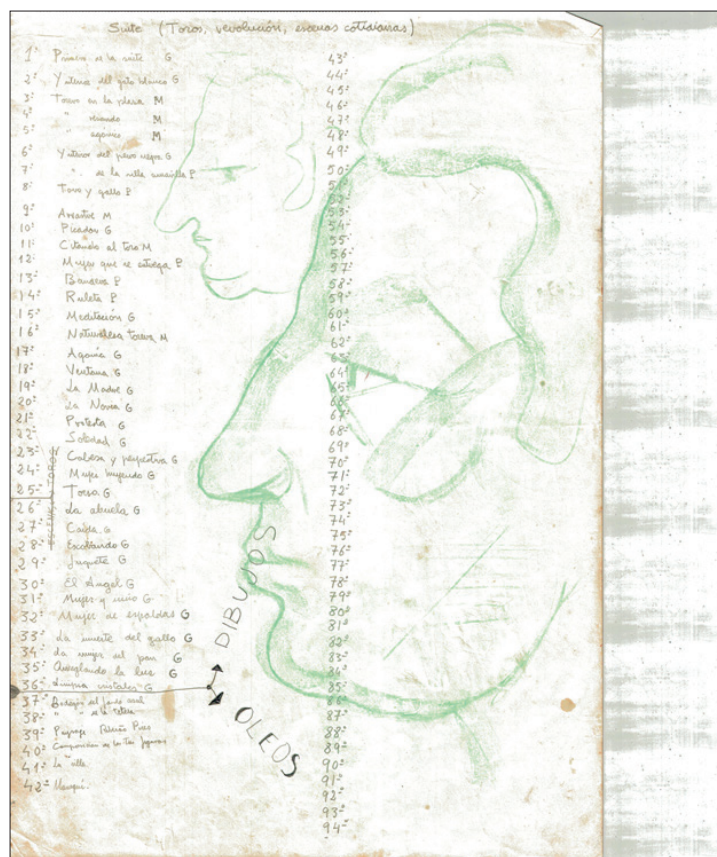 Suite (Toros, revolución, escenas cotidianas)
1º de la suite G
2º del gato blanco G
3º Toros en la plaza M
4º " M
5º " M
6º del perro negro G
7º " de la silla amarilla P
8º Toro y gallo P
9º M
10º Picador G
11º Citando al toro M
12º Mujer que se P
13º P
14º Ruleta P
15º Meditación G
16º Naturaleza M
17º Agonía G
18º Ventana G
19º La Madre G
20º La Novia G
21º Protesta G
22º Soledad G
23º Cabeza y G
24º Mujer huyendo G
25º Torso G
26º La abuela G
27º Caída G
28º G
29º Juguete G
30º El Ángel G
31º Mujer y niño G
31º Mujer de espaldas G
33º La muerte del gallo G
34º La mujer del pan G
35º Arreglando la luz G
36º Limpia cristales G
37º Bodegón del fondo azul
38º " " de la tetera
39º Paisaje
40º Composición de las tres figuras
41º La
42º
ESCENAS TOROS
DIBUJOS
OLEOS
43º
44º
45º
46º
47º
48º
49º
50º
51º
52º
53º
54º
55º
56º
57º
58º
59º
60º
61º
62º
63º
64º
65º
66º
67º
68º
69º
70º
71º
72º
73º
74º
75º
76º
77º
78º
79º
80º
81º
82º
83º
84º
85º
86º
87º
88º
89º
90º
91º
92º
93º
94º